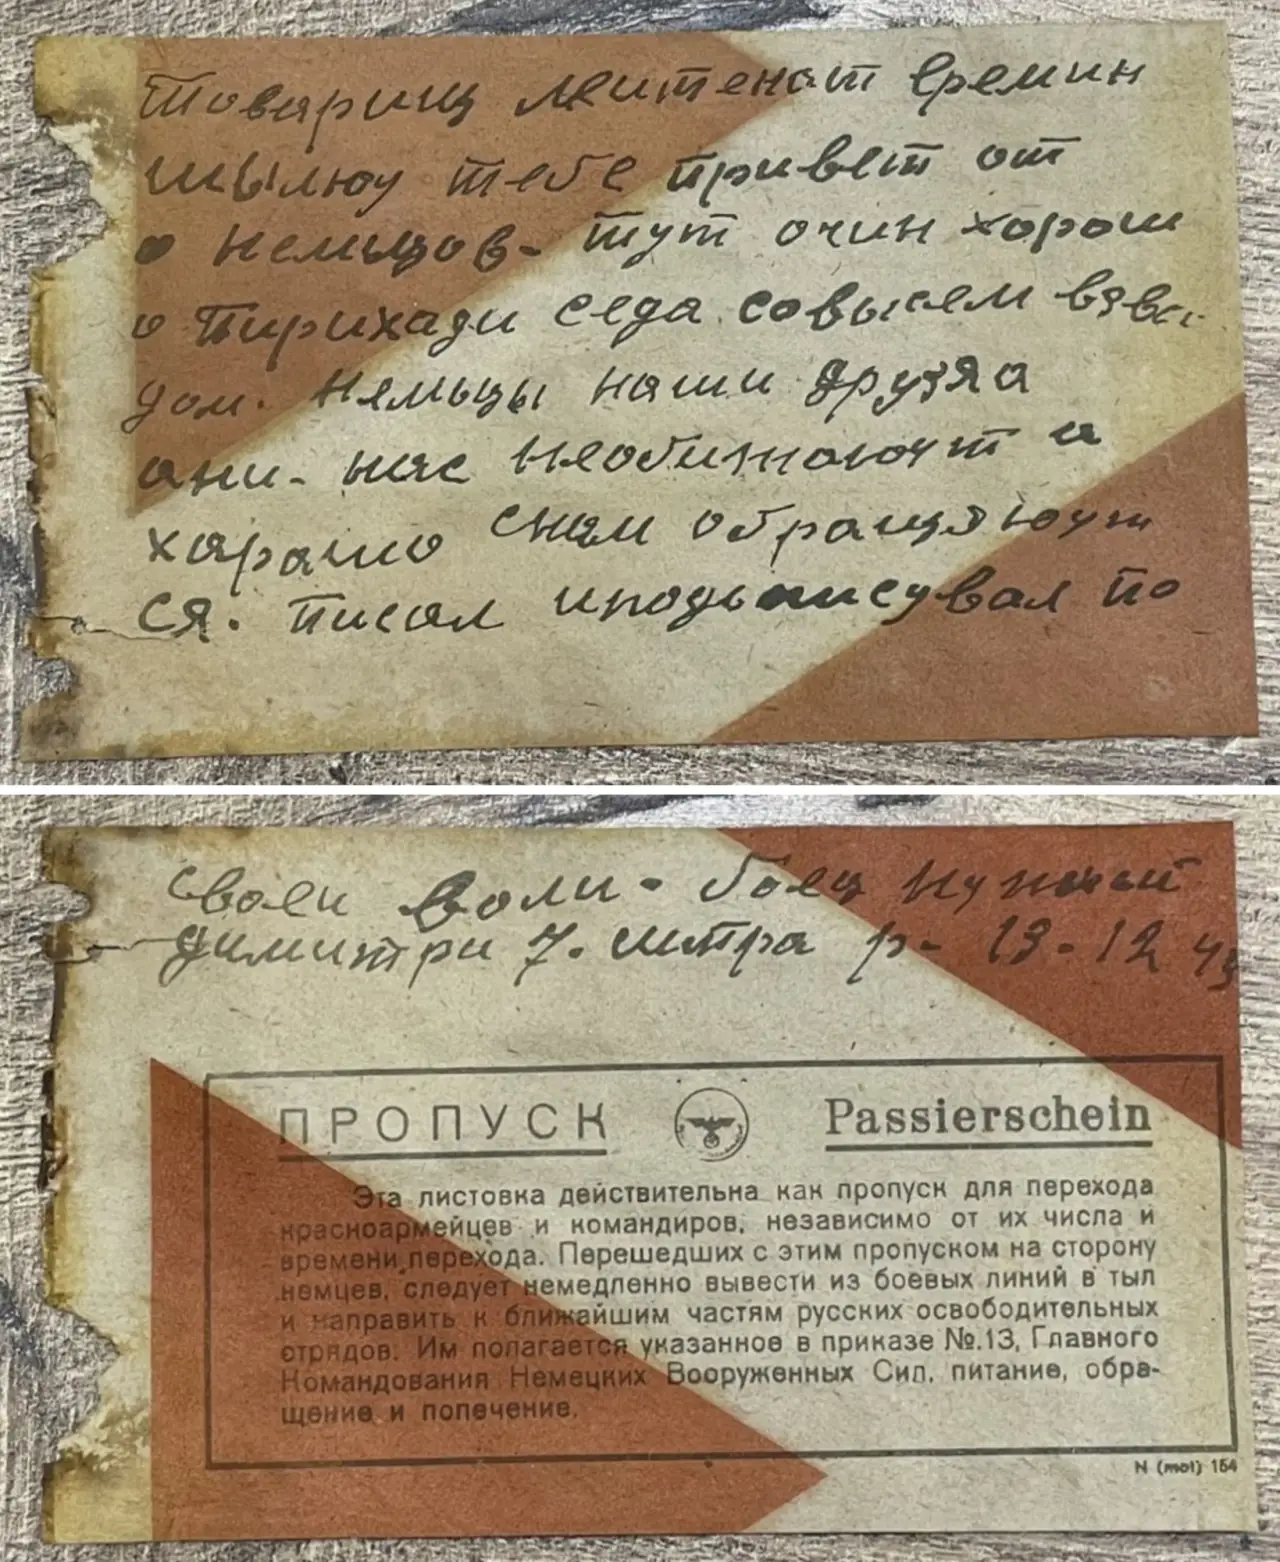 Товарищ литенат Еремин
шылюу тебе привет от
о немьцов- тут очин хорош
о пирихади седа совысем взво
дом. нямьцы наши друзя а
ани. нас необижаюут и
харашо снам обращяюут
ся. писал иподьписувал по
своеи воли. боец
Димитри 7. штра р- 13-12 43
ПРОПУСК Passierschein
Эта листовка действительна как пропуск для перехода
красноармейцев и командиров, независимо от их числа и
времени перехода. Перешедших с этим пропуском на сторону
немцев, следует немедленно вывести из боевых линий в тыл
и направить к ближайшим частям русских освободительных
отрядов. Им полагается указанное в приказе №.13, Главного
Командования Немецких Вооруженных Сил, питание, обра-
щение и попечение.
N (mot) 154